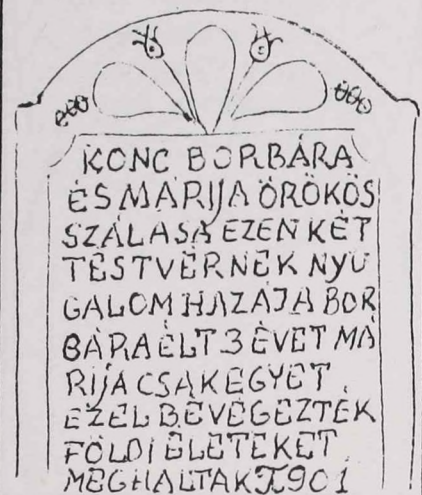 KONC BORBÁRA
ÉS MÁRIJA ÖRÖKÖS
SZÁLASA EZEN KÉT
TESTVÉRNEK NYU
GALOM HAZÁJA BOR
BÁRA ÉLT 3 ÉVET MÁ
RIJA CSAK EGYET
EZEL BEVÉGEZTÉK
FÖLDI ÉLETEKET
MEGHALTAK 1901